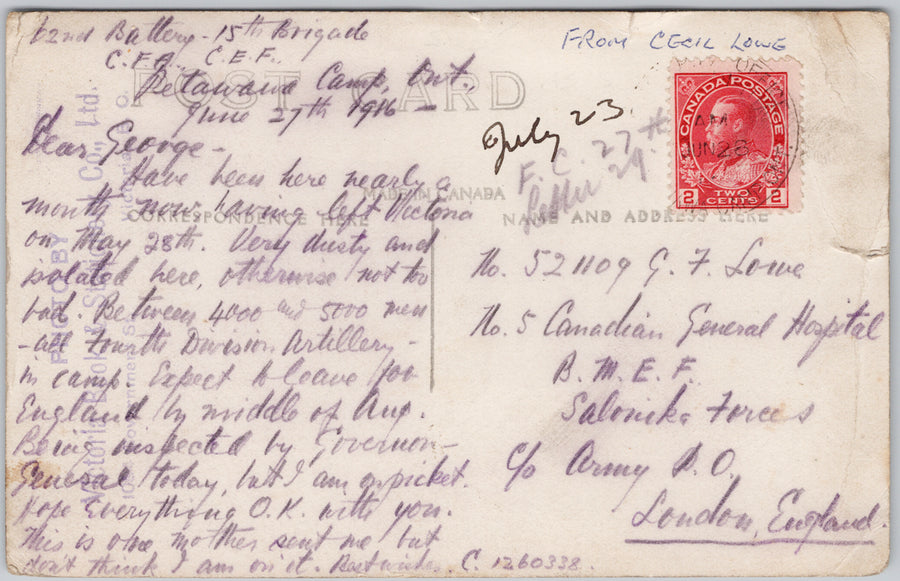 62nd Battery - 15th Brigade
C.F.A. C.E.F.
Petawawa Camp, Ont.,
June 27th 1916 -
Dear George -
Have been here nearly a
month now having left Victoria
on May 28th. Very dusty and
isolated here, otherwise not too
bad. Between 4000 and 5000 men
- all Fourth Division Artillery -
in camp. Expect to leave for
England by middle of Aug.
Being inspected by Governor-
General today, but I am on picket.
Hope Everything O.K. with you.
This is one mother sent me but
don't think I am on it. Best wishes C. 1260338.
FROM CECIL LOWE
July 23.
F. C. 27th
Letter 29.
No. 521109 G. F. Lowe
No. 5 Canadian General Hospital
B. M. E. F.
Salonika Forces
c/o Army P.O.,
London, England.
POST CARD
MADE IN CANADA
CORRESPONDENCE HERE
NAME AND ADDRESS HERE
CANADA POSTAGE
2 TWO CENTS 2
AM
JUN 28
PHOTO BY
Victoria Book & Co., Ltd.